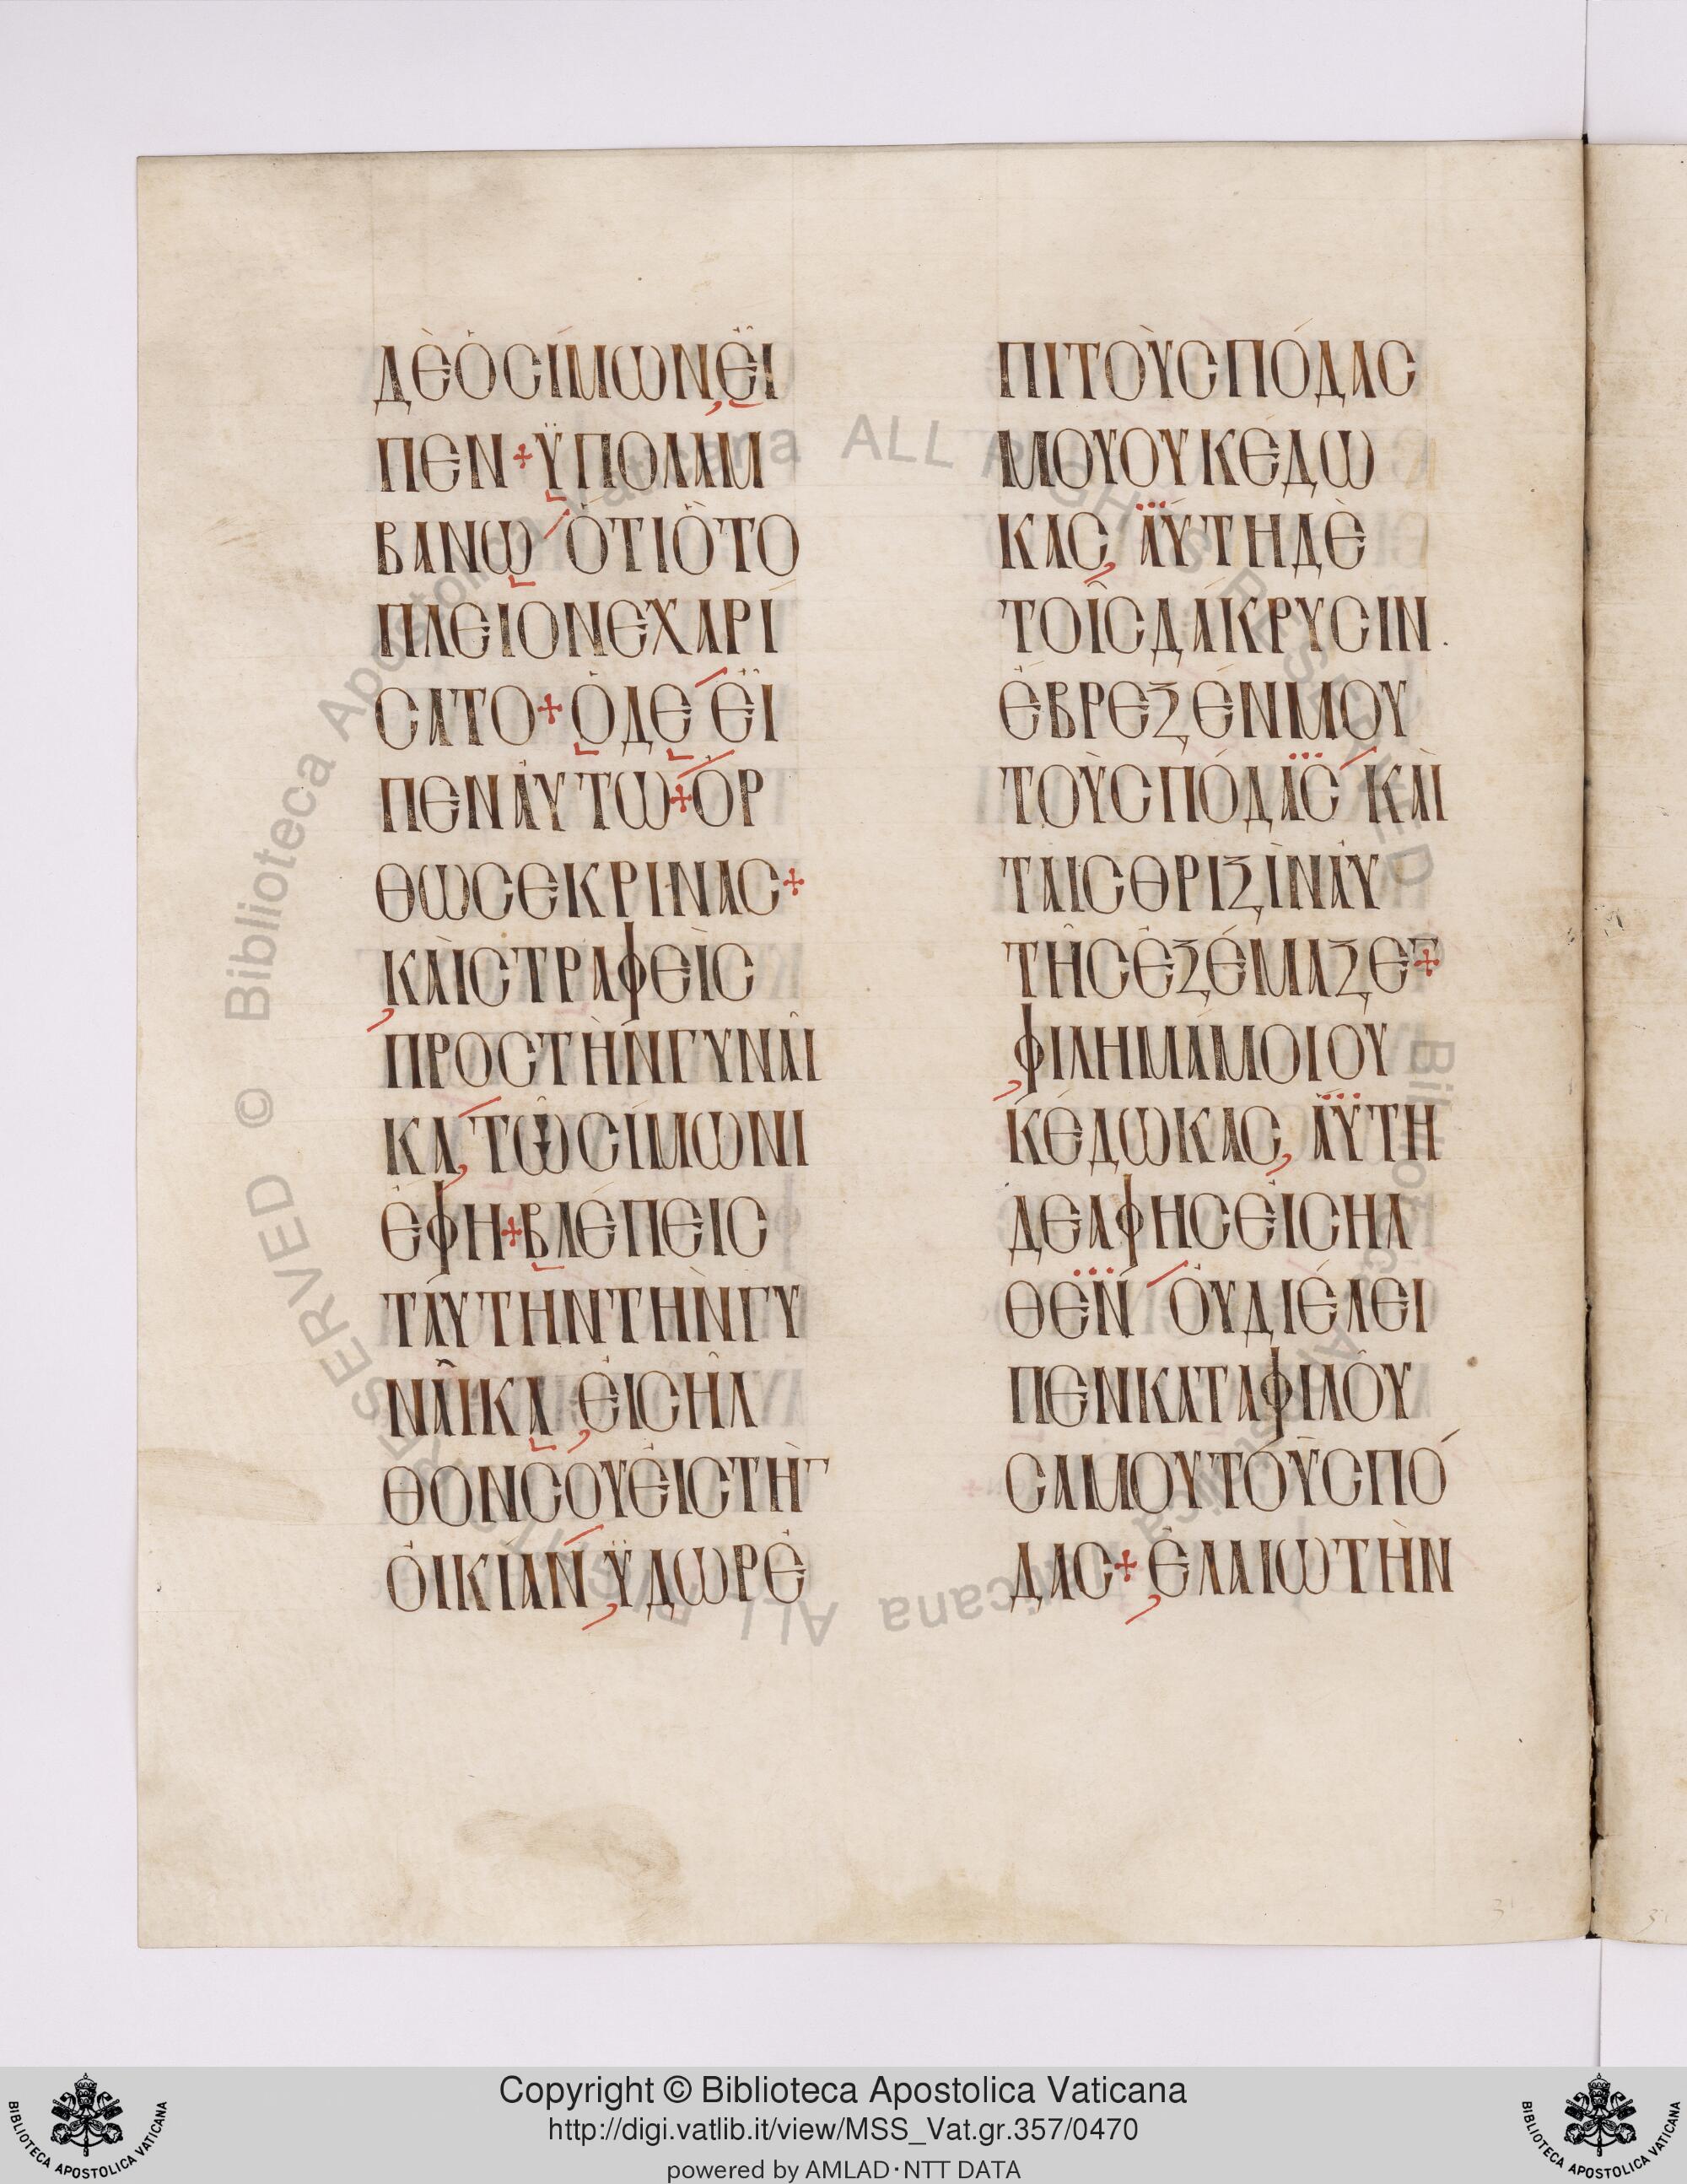 ΔὲὉϹίΜΩΝΕἶ
ΠΕΝ+ΫΠΟΛΑΜ
ΒΆΝΩ ὍΤΙὯΤΟ
ΠΛΕΙΟΝΕΧΑΡΊ
ϹΑΤΟ+ὉΔΕ ΕἾ
ΠΕΝἀΥΤΩ+ὈΡ
ΘΩϹΕΚΡΙΝΑϹ+
ΚΑὶϹΤΡΑΦΕὶϹ
ΠΡΟϹΤῊΝΓΥΝΑῖ
ΚΑ,ΤῶϹίΜΩΝΙ
ἔΦΗ+ΒΛέΠΕΙϹ
ΤΑύΤΗΝΤῊΝΓΥ
ΝΑῖΚΑ ΕἰϹῆΛ
ΘΟΝϹΟΥΕἰϹΤῊΝ
ΟἰΚΙΑΝ,ΫΔΩΡἐ
ΠΙΤΟὺϹΠόΔΑϹ
ΜΟΥΟΥΚέΔΩ
ΚΑϹ, ΑὕΤΗΔὲ
ΤΟῖϹΔάΚΡΥϹΙΝ.
ἔΒΡΕΞέΝΜΟΥ
ΤΟὺϹΠόΔΑϹ ΚΑὶ
ΤΑΙϹΘΡΙΞὶΝΑὐ
ΤῆϹἐΞέΜΑΞΕΝ+
ΦίΛΗΜάΜΟΙΟΥ
ΚέΔΩΚΑϹ, ΑὕΤΗ
ΔΕΑΦΗϹΕἰϹΗΛ
ΘΕΝ ΟὐΔΙέΛΕΙ
ΠΕΝΚΑΤΑΦΙΛΟῦ
ϹΑΜΟΥΤΟὺϹΠό
ΔΑϹ+ἐΛΑΙΩΤῊΝ
Copyright © Biblioteca Apostolica Vaticana
http://digi.vatlib.it/view/MSS_Vat.gr.357/0470
powered by AMLAD·NTT DATA
BIBLIOTECA APOSTOLICA VATICANA
BIBLIOTECA APOSTOLICA VATICANA
© Biblioteca Apostolica Vaticana ALL RIGHTS RESERVED
© Biblioteca Apostolica Vaticana ALL RIGHTS RESERVED